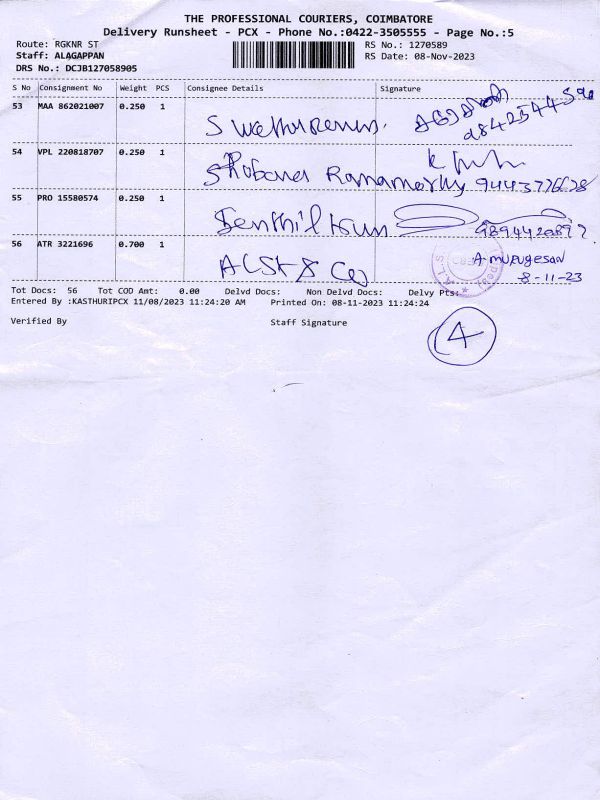 THE PROFESSIONAL COURIERS, COIMBATORE
Delivery Runsheet - PCX - Phone No.:0422-3505555 - Page No.:5
Route: RGKNR ST RS No.: 1270589
Staff: ALAGAPPAN RS Date: 08-Nov-2023
DRS No.: DCJB127058905
S No Consignment No Weight PCS Consignee Details Signature
53 MAA 862021007 0.250 1
54 VPL 220818707 0.250 1
Shobana Ramamorthy
55 PRO 15580574 0.250 1
Senthil
56 ATR 3221696 0.700 1
A. Murugesan
8-11-23
Tot Docs: 56 Tot COD Amt: 0.00 Delvd Docs: Non Delvd Docs: Delvy Pts:
Entered By :KASTHURIPCX 11/08/2023 11:24:20 AM Printed On: 08-11-2023 11:24:24
Verified By Staff Signature
4